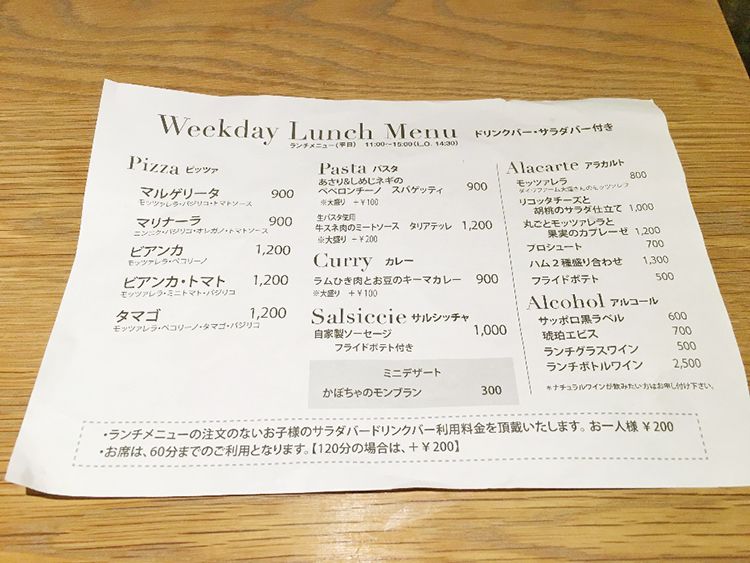 Weekday Lunch Menu ドリンクバー・サラダバー付き
ランチメニュー(平日) 11:00〜15:00(L.O. 14:30)
Pizza ピッツァ
マルゲリータ 900
モッツァレラ・バジリコ・トマトソース
マリナーラ 900
ニンニク・バジリコ・オレガノ・トマトソース
ビアンカ 1,200
モッツァレラ・ペコリーノ
ビアンカ・トマト 1,200
モッツァレラ・ミニトマト・バジリコ
タマゴ 1,200
モッツァレラ・ペコリーノ・タマゴ・バジリコ
Pasta パスタ
あさり&しめじネギの
ペペロンチーノ スパゲッティ 900
※大盛り +￥100
生パスタ使用
牛スネ肉のミートソース タリアテッレ 1,200
※大盛り +￥200
Curry カレー
ラムひき肉とお豆のキーマカレー 900
※大盛り +￥100
Salsiccie サルシッチャ
自家製ソーセージ 1,000
フライドポテト付き
ミニデザート
かぼちゃのモンブラン 300
Alacarte アラカルト
モッツァレラ 800
リコッタチーズと
胡桃のサラダ仕立て 1,000
丸ごとモッツァレラと
果実のカプレーゼ 1,200
プロシュート 700
ハム２種盛り合わせ 1,300
フライドポテト 500
Alcohol アルコール
サッポロ黒ラベル 600
琥珀エビス 700
ランチグラスワイン 500
ランチボトルワイン 2,500
＊ナチュラルワインが飲みたい方はお申し付け下さい。
・ランチメニューの注文のないお子様のサラダバードリンクバー利用料金を頂戴いたします。お一人様￥200
・お席は、60分までのご利用となります。【120分の場合は、+￥200】